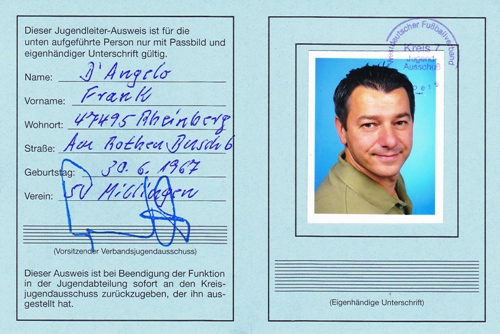 Dieser Jugendleiter-Ausweis ist für die
unten aufgeführte Person nur mit Passbild und
eigenhändiger Unterschrift gültig.
Name: D'Angelo
Vorname: Frank
Wohnort: 47495 Rheinberg
Straße: Am Rothen Busch 6
Geburtstag: 30.6.1967
Verein: SV Millingen
(Vorsitzender Verbandsjugendausschuss)
Dieser Ausweis ist bei Beendigung der Funktion
in der Jugendabteilung sofort an den Kreis-
jugendausschuss zurückzugeben, der ihn ausgestellt hat.
Westdeutscher Fußballverband
Kreis 7
Jugend-
Ausschuß
(Eigenhändige Unterschrift)